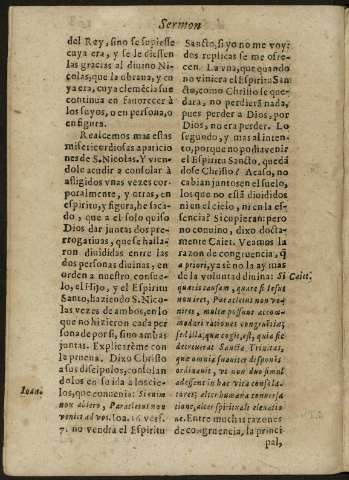 Sermon
del Rey, sino se supiesse
cuya era, y se le diessen
las gracias al diuino Ni-
colas, que la obraua, y en
ya era, cuya clemẽcia fue
continua en fauorecer à
los suyos, o en persona, o
en figura.
Realcemos mas estas
misericordiosas aparicio
nes de S. Nicolas. Y vien-
dole acudir a consolar à
afligidos vnas vezes cor-
poralmente, y otras, en
espiritu, y figura, he saca-
do, que a el solo quiso
Dios dar juntas dos pre-
rrogatiuas, que se halla-
ron diuididas entre las
dos personas diuinas, en
orden a nuestro consue-
lo, el Hijo, y el Espiritu
Santo, haziendo S. Nico-
las vezes de ambos, en lo
que no hizieron cada per
sona de por si, sino ambas
juntas. Explicarème con
la prueua. Dixo Christo
a sus discipulos, consolan
dolos en su ida a los cie-
los, que conuenia: Si enim
Ioan.
non abiero, Paracletus non
veniet ad vos. Ioa. 16. vers.
7. no vendra el Espiritu
Sancto, si yo no me voy:
dos replicas se me ofre-
cen. La vna, que quando
no viniera el Espiritu San
cto, como Christo se que-
dara, no perdierã nada,
pues perder a Dios, por
Dios, no era perder. Lo
segundo, y mas al inten-
to, porque no podia venir
el Espiritu Sancto, quedã
dose Christo? Acaso, no
cabian juntos en el suelo,
los que no estã diuididos
ni en el cielo, ni en la es-
sencia? Si cupieran: pero
no conuino, dixo docta-
mente Caiet. Veamos la
razon de congruencia, q̃
a priori, ya sè no la ay mas
de la voluntad diuina: Si
Caiet.
quæris causam, quare si Iesus
non iret, Paracletus non ve-
niret, multæ possunt accom-
modari rationes congruentiæ;
sed illa, quæ cogit, est, quia sic
decreuerat Sancta Trinitas,
quæ omnia suauiter disponit
ordinauit, vt non duo simul
adessent in hac vita consola-
tores; alter humanæ conuersa
tione, alter spirituali eleuatio
ne. Entre muchas razones
de congruencia, la princi
pal,